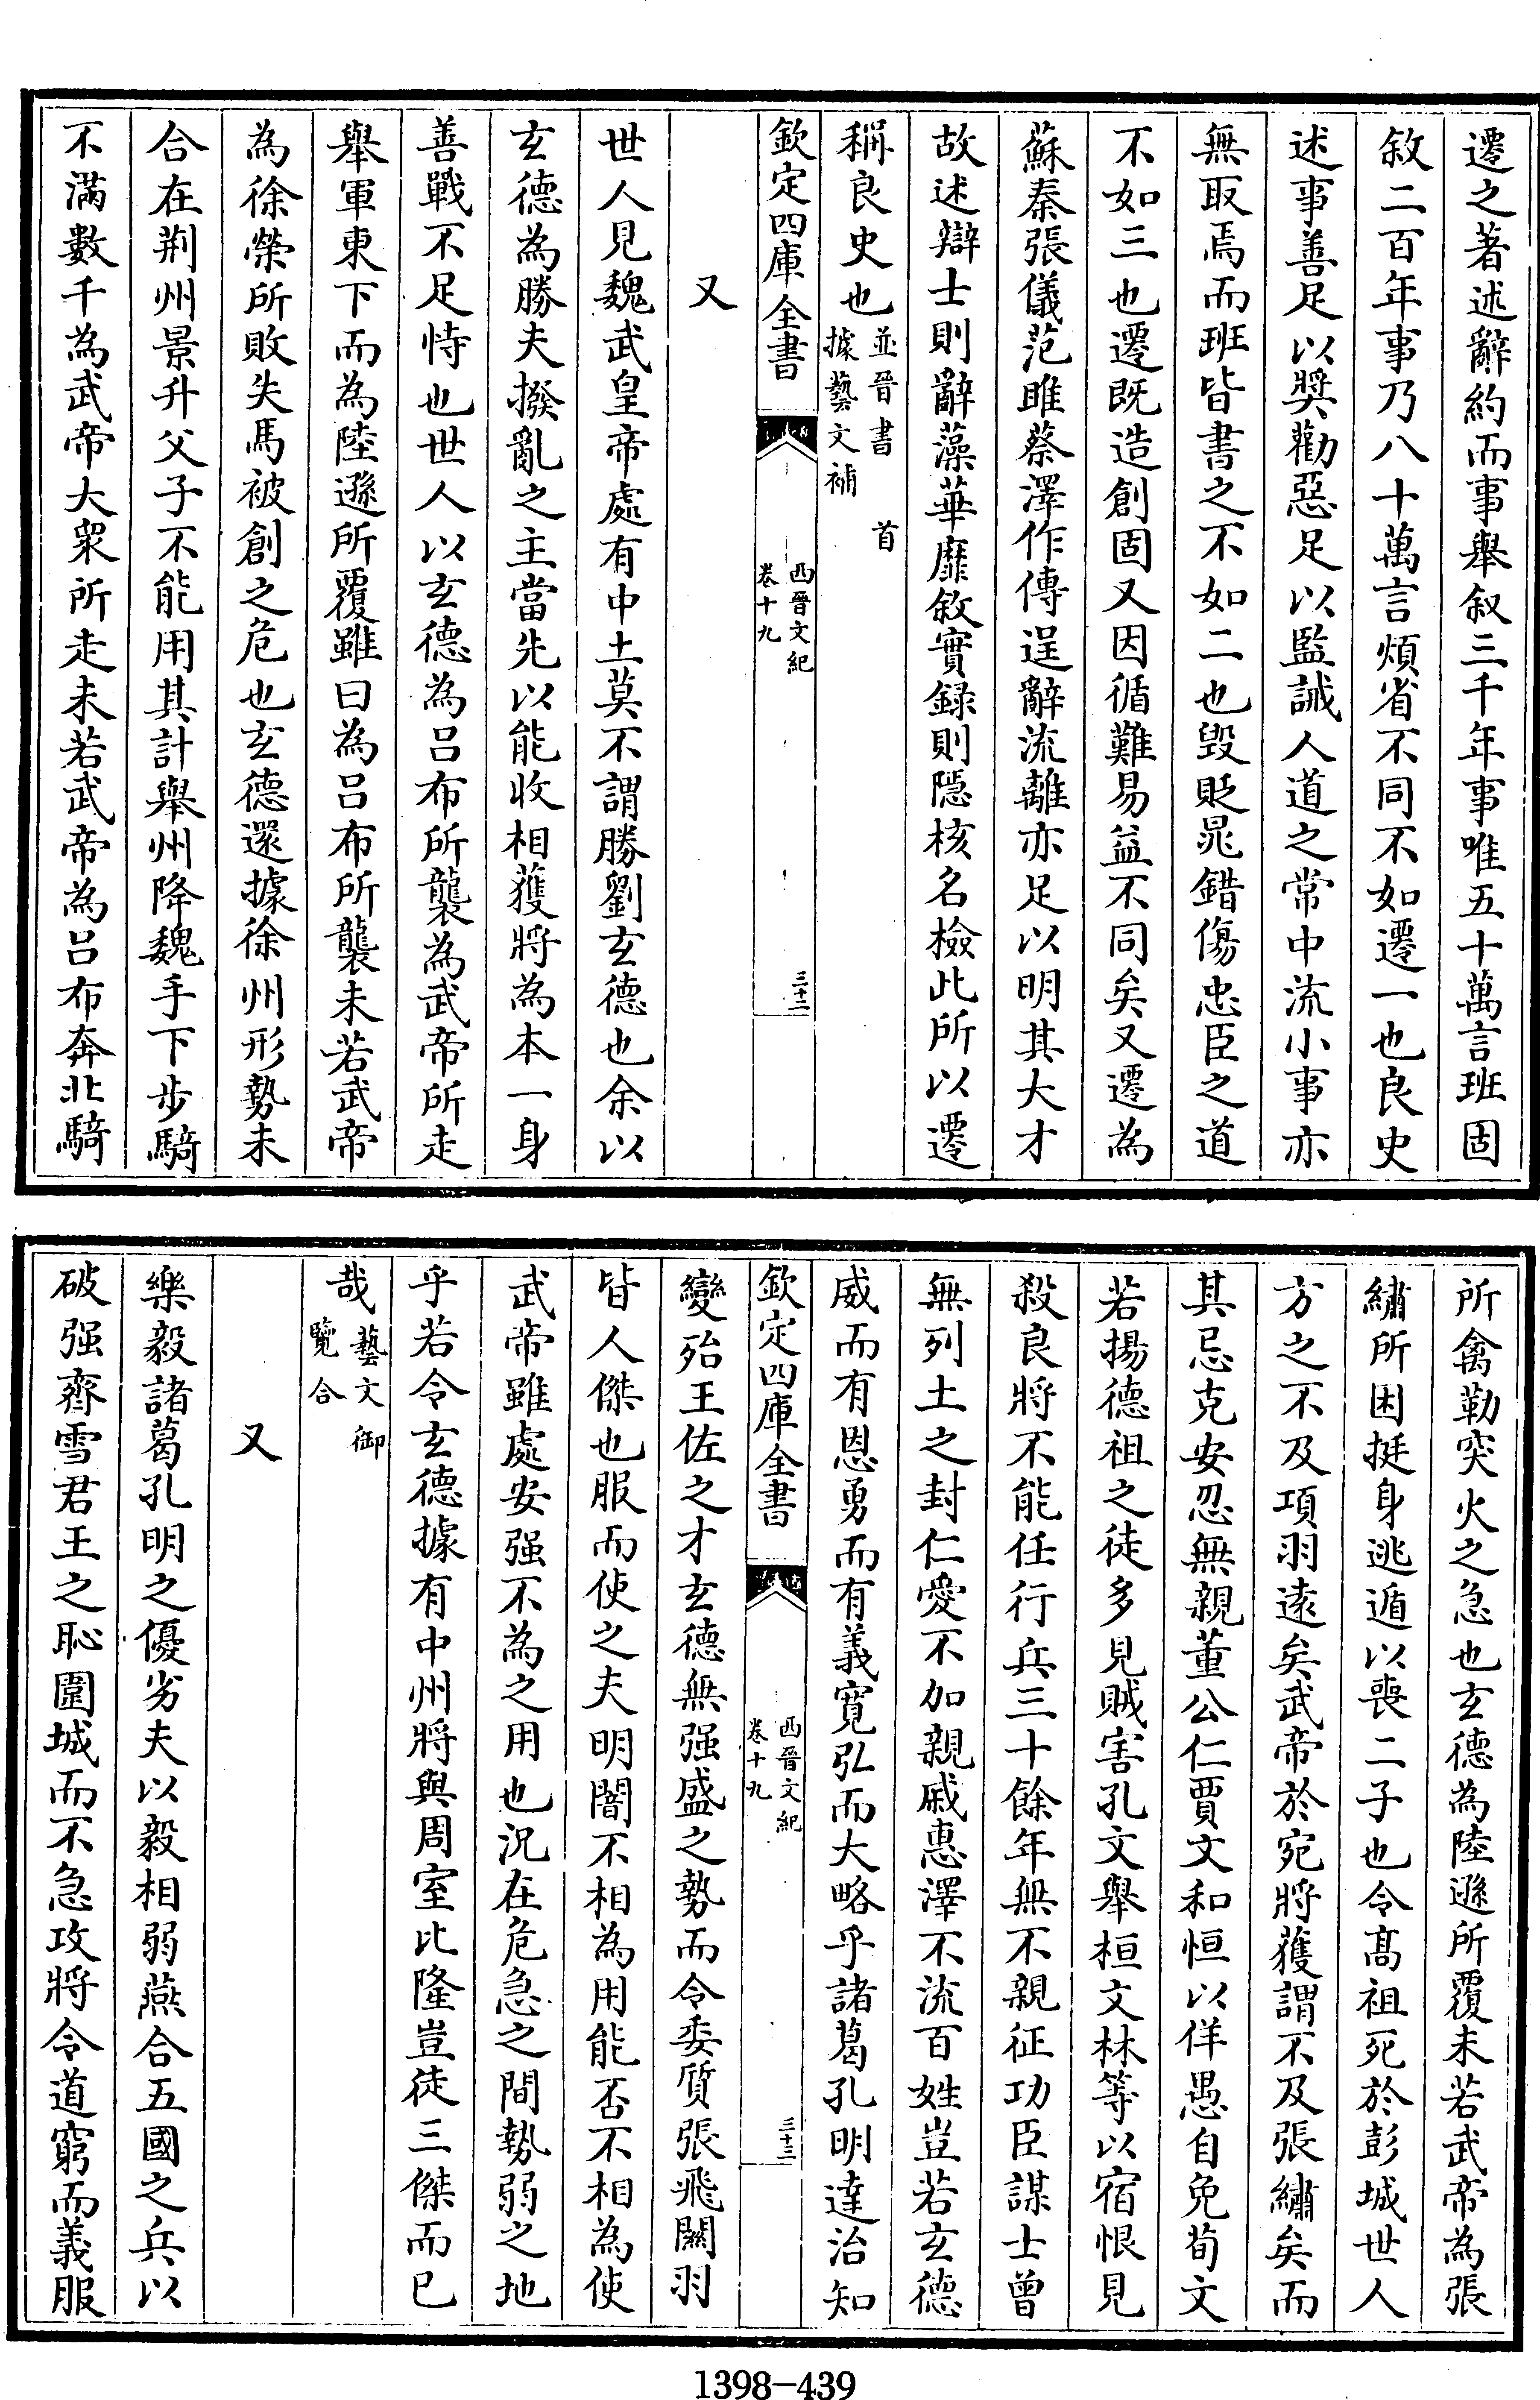 遷之著述辭約而事舉叙三千年事唯五十萬言班固
敘二百年事乃八十萬言煩省不同不如遷一也良史
述事善足以奬勸惡足以監誡人道之常中流小事亦
無取焉而班皆書之不如二也毁貶晁錯傷忠臣之道
不如三也遷既造創固又因循難易益不同矣又遷為
蘇秦張儀范雎蔡澤作傳逞辭流離亦足以明其大才
故述辯士則辭藻華靡敘實録則隠核名檢此所以遷
稱良史也並晉書 首
據藝文補
欽定四庫全書
西晉文紀
卷十九
三十二
又
世人見魏武皇帝處有中土莫不謂勝劉玄德也余以
玄德為勝夫撥亂之主當先以能收相獲將為本一身
善戰不足恃也世人以玄德為吕布所襲為武帝所走
舉軍東下而為陸遜所覆雖曰為吕布所襲未若武帝
為徐榮所敗失馬被創之危也玄德還據徐州形勢未
合在荆州景升父子不能用其計舉州降魏手下步騎
不滿數千為武帝大衆所走未若武帝為吕布奔北騎
所禽勒突火之急也玄德為陸遜所覆未若武帝為張
繡所困挺身逃遁以喪二子也令髙祖死於彭城世人
方之不及項羽遠矣武帝於宛將獲謂不及張繡矣而
其忌克安忍無親董公仁賈文和恒以佯愚自免荀文
若揚德祖之徒多見賊害孔文舉桓文林等以宿恨見
殺良將不能任行兵三十餘年無不親征功臣謀士曾
無列土之封仁愛不加親戚惠澤不流百姓豈若玄德
威而有恩勇而有義寛弘而大略乎諸葛孔明達治知
欽定四庫全書
西晉文紀
卷十九
三十三
變殆王佐之才玄德無强盛之勢而令委質張飛關羽
皆人傑也服而使之夫明闇不相為用能否不相為使
武帝雖處安强不為之用也况在危急之間勢弱之地
乎若令玄德據有中州將與周室比隆豈徒三傑而已
哉藝文御
覽合
又
樂毅諸葛孔明之優劣夫以毅相弱燕合五國之兵以
破强齊雪君王之恥圍城而不急攻將令道窮而義服
1398-439